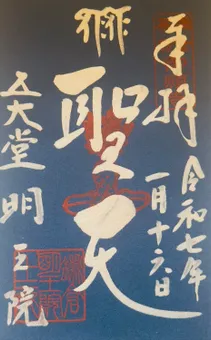 奉拝
令和七年
一月十六日
聖天
五大堂
明王院